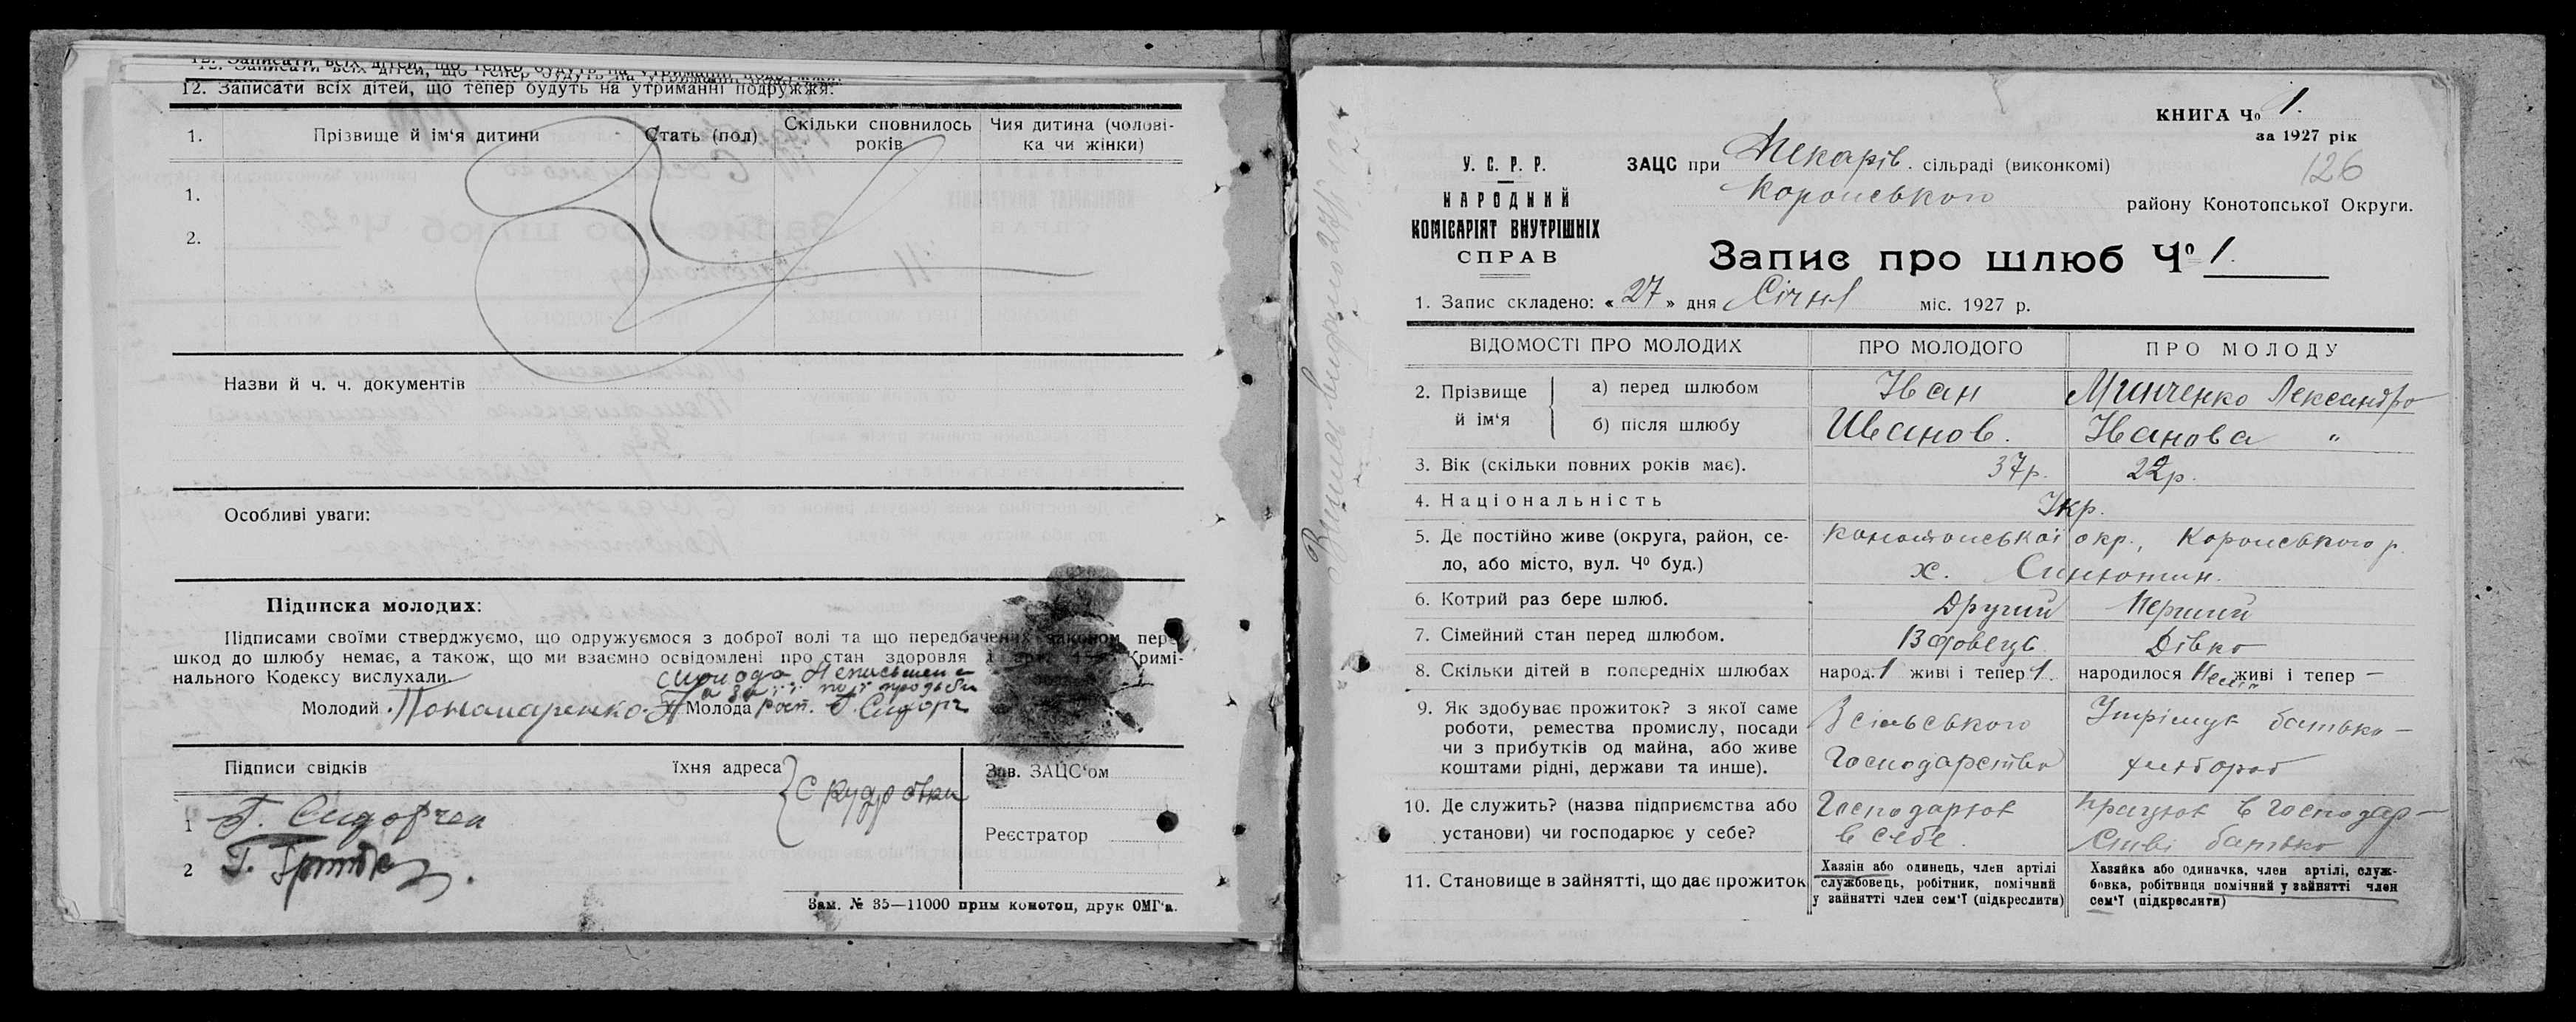 12. Записати всіх дітей, що тепер будуть на утриманні подружжя:
1. Прізвище й ім'я дитини Стать (пол) Скільки сповнилось років Чия дитина (чоловіка чи жінки)
1.
2.
Назви й ч. ч. документів
Особливі уваги:
Підписка молодих:
Підписами своїми стверджуємо, що одружуємося з доброї волі та що передбачених законом пере-
шкод до шлюбу немає, а також, що ми взаємно освідомлені про стан здоровля і арт. Кримі-
нального Кодексу вислухали
Молодий Пономаренко Молода
Підписи свідків Їхня адреса Зав. ЗАЦС'ом
1 Г. Сидорчен
Реєстратор
2 Г.
Зам. № 35—11000 прим конотоп, друк ОМГ'а.
КНИГА Ч° 1.
за 1927 рік
126
У. С. Р. Р.
НАРОДНИЙ
КОМІСАРІЯТ ВНУТРІШНІХ
СПРАВ
ЗАЦС при Лекарів. сільраді (виконкомі)
Коропського району Конотопської Округи.
Запис про шлюб Ч° 1.
1. Запис складено: « 27 » дня Січня міс. 1927 р.
ВІДОМОСТІ ПРО МОЛОДИХ ПРО МОЛОДОГО ПРО МОЛОДУ
2. Прізвище й ім'я а) перед шлюбом Іван Минченко Лександро
б) після шлюбу Иванов. Іванова "
3. Вік (скільки повних років має). 37р. 22р.
4. Національність Укр.
5. Де постійно живе (округа, район, се- Конотопської окр., Коропського р.
ло, або місто, вул. Ч° буд.) х. Синютин.
6. Котрий раз бере шлюб. Другий Перший
7. Сімейний стан перед шлюбом. Вдовець Дівко
8. Скільки дітей в попередніх шлюбах народ. 1 живі і тепер 1. народилося живі і тепер —
9. Як здобуває прожиток? з якої саме З сільського батько—
роботи, ремества промислу, посади
чи з прибутків од майна, або живе Господарства хлібороб
коштами рідні, держави та инше).
10. Де служить? (назва підприємства або Господарює працює в господар—
установи) чи господарює у себе? в себе. стві батько
11. Становище в зайнятті, що дає прожиток
Хазяін або одинець, член артілі
службовець, робітник, помічний
у зайнятті член сем'ї (підкреслити)
Хазяйка або одиначка, член артілі, служ-
бовка, робітниця помічний у зайнятті член
сем'ї (підкреслити)